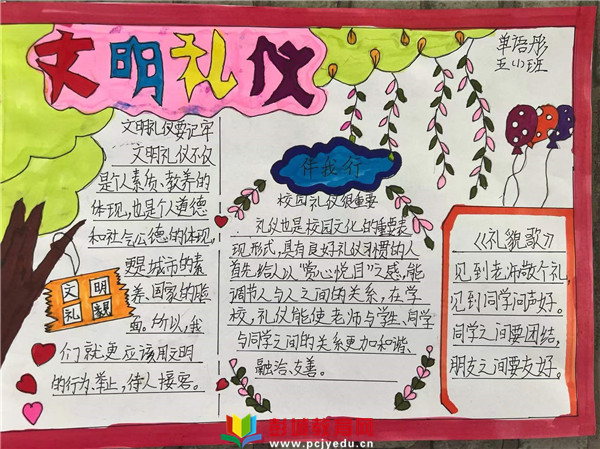 文明礼仪
单语彤
五(1)班
文明礼仪要记牢
文明礼仪不仅
是个人素质、教养的
体现,也是个人道德
和社会公德的体现,
更是城市的素
养、国家的脸
面。所以,我
们就更应该用文明
的行为、举止,待人接客。
文明
礼貌
伴我行
校园礼仪很重要
礼仪也是校园文化的重要表
现形式,具有良好礼仪习惯的人
首先给人以“赏心悦目”之感,能
调节人与人之间的关系,在学
校,礼仪能使老师与学生、同学
与同学之间的关系更加和谐、
融洽、友善。
《礼貌歌》
见到老师敬个礼,
见到同学问声好。
同学之间要团结,
朋友之间要友好。
彭城教育网
www.pcjyedu.cn